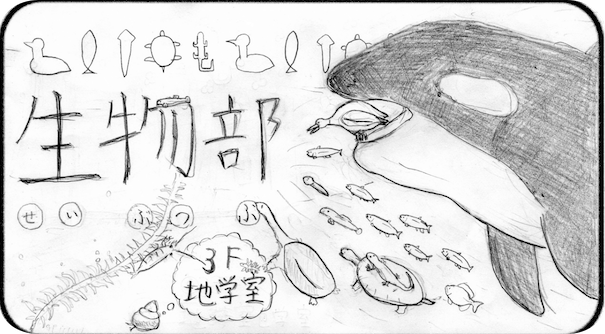 生物部
せいぶつぶ
3F
地学室